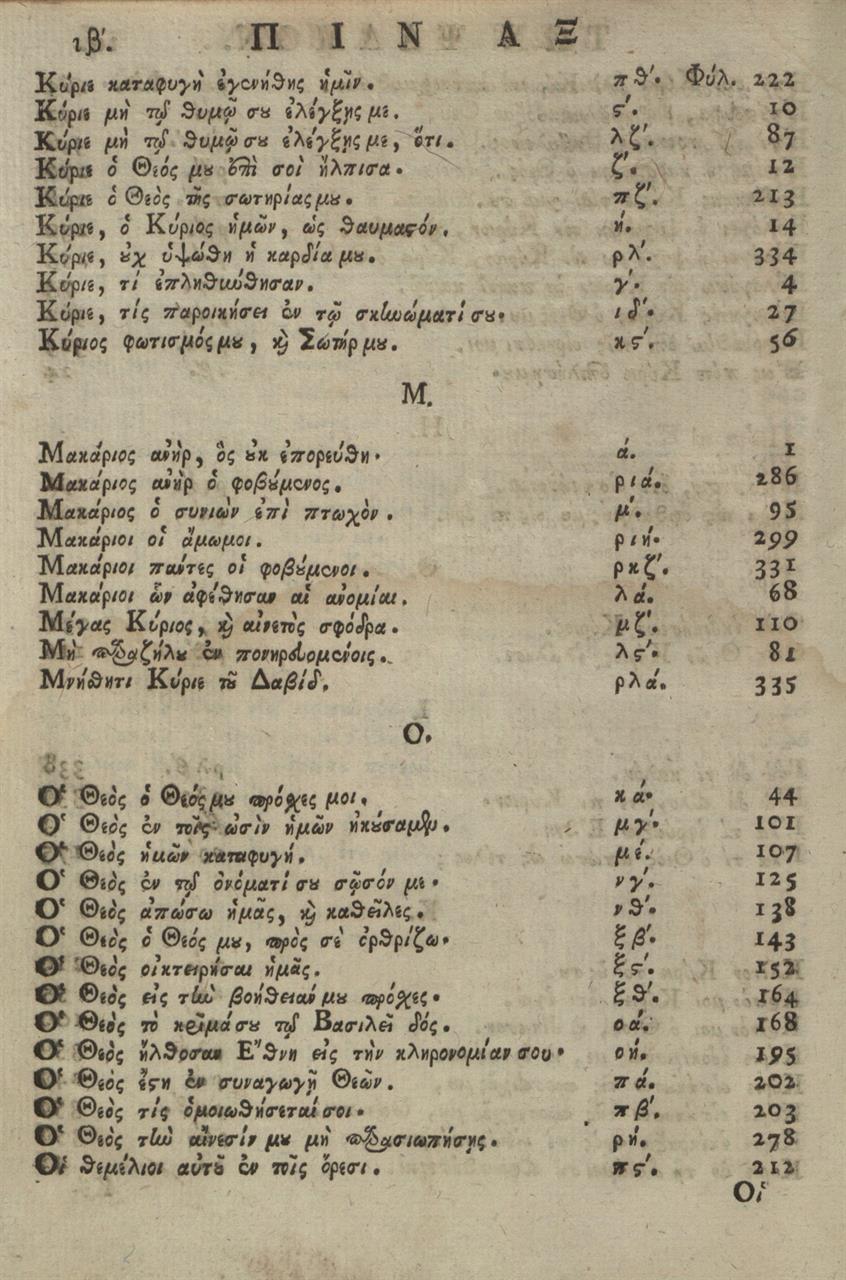 ιβ´. ΠΙΝΑΞ
Κύριε καταφυγὴ ἐγενήθης ἡμῖν. πθ´. Φύλ. 222
Κύριε μὴ τῷ θυμῷ σου ἐλέγξῃς με. ς´. 10
Κύριε μὴ τῷ θυμῷ σου ἐλέγξῃς με, ὅτι. λζ´. 87
Κύριε ὁ Θεός μου ἐπὶ σοὶ ἤλπισα. ζ´. 12
Κύριε ὁ Θεὸς τῆς σωτηρίας μου. πζ´. 213
Κύριε, ὁ Κύριος ἡμῶν, ὡς θαυμαστόν. ή. 14
Κύριε, οὐχ ὑψώθη ἡ καρδία μου. ρλ´. 334
Κύριε, τί ἐπληθύνθησαν. γ´. 4
Κύριε, τίς παροικήσει ἐν τῷ σκηνώματί σου. ιδ´. 27
Κύριος φωτισμός μου, καὶ Σωτήρ μου. κς´. 56
Μ.
Μακάριος ἀνὴρ, ὃς οὐκ ἐπορεύθη. ά. 1
Μακάριος ἀνὴρ ὁ φοβούμενος. ριά. 286
Μακάριος ὁ συνιὼν ἐπὶ πτωχὸν. μ´. 95
Μακάριοι οἱ ἄμωμοι. ριή. 299
Μακάριοι πάντες οἱ φοβούμενοι. ρκζ´. 331
Μακάριοι ὧν ἀφέθησαν αἱ ἀνομίαι. λά. 68
Μέγας Κύριος, καὶ αἰνετὸς σφόδρα. μζ´. 110
Μὴ παραζήλου ἐν πονηρευομένοις. λς´. 81
Μνήθητι Κύριε τοῦ Δαβίδ. ρλά. 335
Ο.
Ὁ Θεὸς ὁ Θεός μου πρόσχες μοι. κά. 44
Ὁ Θεὸς ἐν τοῖς ὠσὶν ἡμῶν ἠκούσαμεν. μγ´. 101
Ὁ Θεὸς ἡμῶν καταφυγή. μέ. 107
Ὁ Θεὸς ἐν τῷ ὀνόματί σου σῶσόν με. νγ´. 125
Ὁ Θεὸς ἀπώσω ἡμᾶς, καὶ καθεῖλες. νθ´. 138
Ὁ Θεὸς ὁ Θεός μου, πρὸς σὲ ὀρθρίζω. ξβ´. 143
Ὁ Θεὸς οἰκτειρήσαι ἡμᾶς. ξς´. 152
Ὁ Θεὸς εἰς τὴν βοήθειάν μου πρόσχες. ξθ´. 164
Ὁ Θεὸς τὸ κρῖμά σου τῷ Βασιλεῖ δός. οά. 168
Ὁ Θεὸς ἤλθοσαν Ἔθνη εἰς τὴν κληρονομίαν σου. οή. 195
Ὁ Θεὸς ἔστη ἐν συναγωγῇ Θεῶν. πά. 202
Ὁ Θεὸς τίς ὁμοιωθήσεταί σοι. πβ´. 203
Ὁ Θεὸς τὴν αἴνεσίν μου μὴ παρασιωπήσῃς. ρή. 278
Οἱ θεμέλιοι αὐτοῦ ἐν τοῖς ὄρεσι. πς´. 212
Οἱ